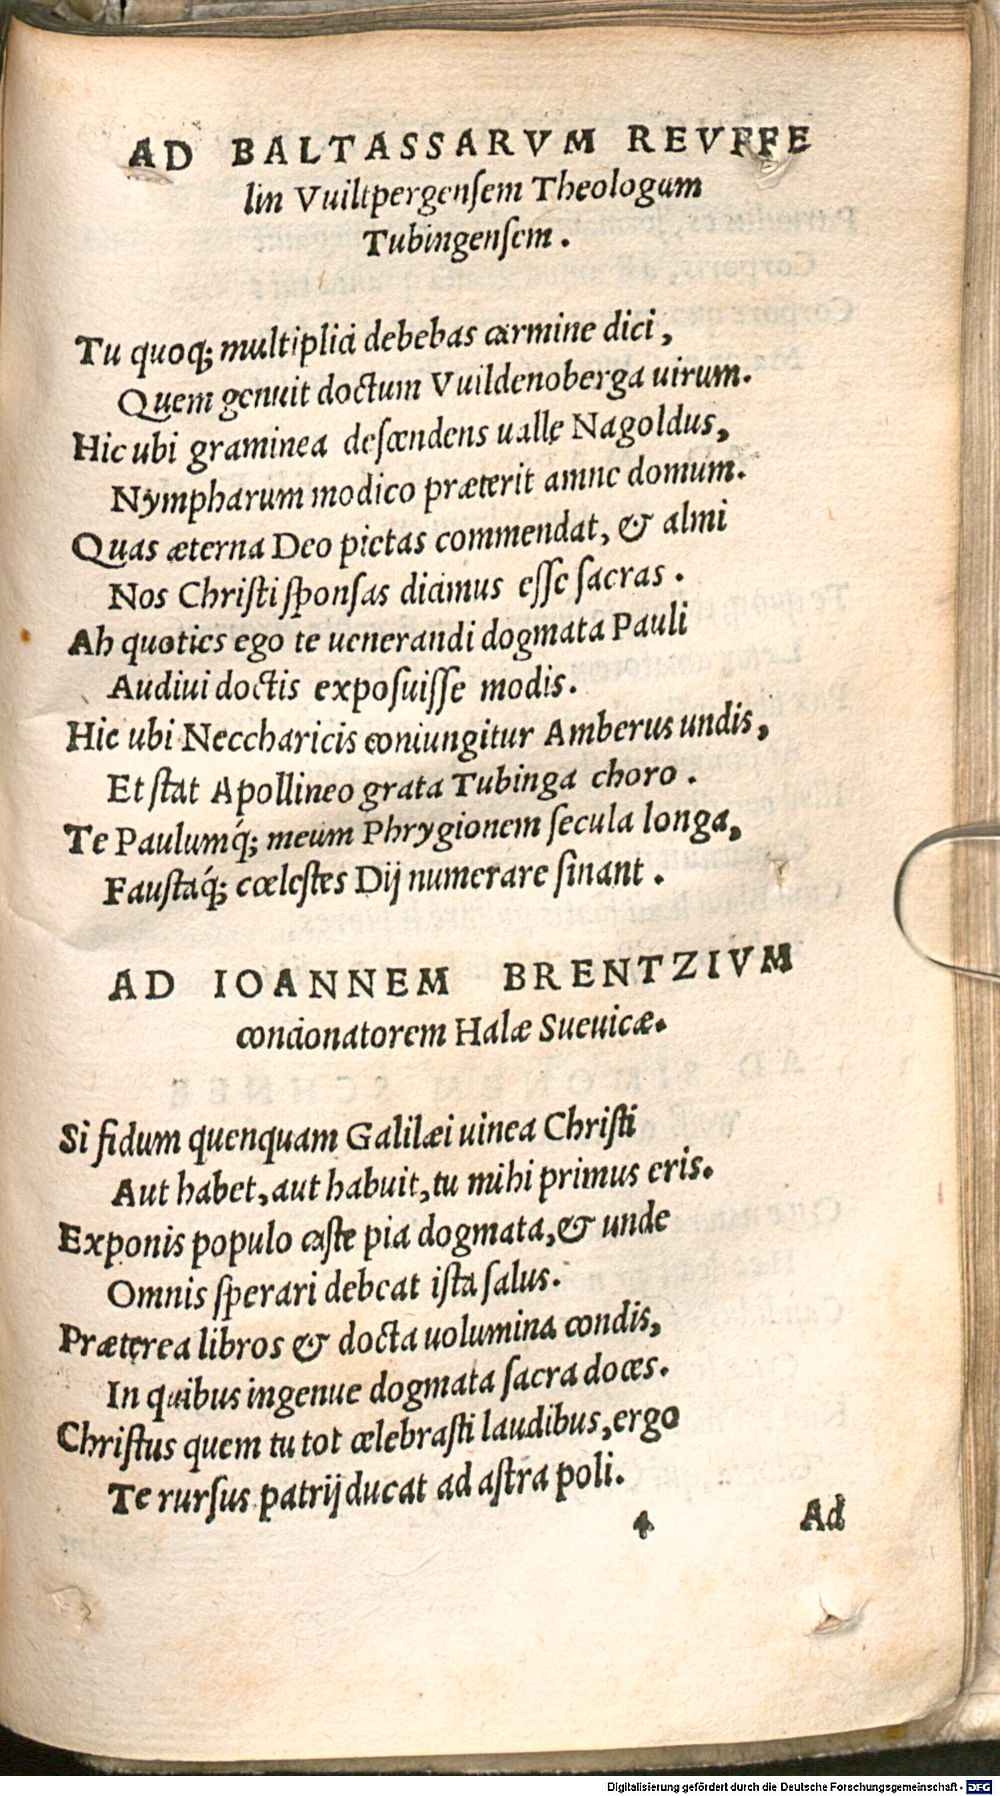 AD BALTASSARVM REVFFE
lin Vuiltpergensem Theologum
Tubingensem.
Tu quoq; multiplici debebas carmine dici,
Quem genuit doctum Vuildenoberga uirum.
Hic ubi graminea descendens ualle Nagoldus,
Nympharum modico præterit amne domum.
Quas æterna Deo pictas commendat, & almi
Nos Christi sponsas dicimus esse sacras.
Ah quoties ego te uenerandi dogmata Pauli
Audiui doctis exposuisse modis.
Hic ubi Neccharicis coniungitur Amberus undis,
Et stat Apollineo grata Tubinga choro.
Te Paulumq́; meum Phrygionem secula longa,
Faustaq́; cœlestes Dij numerare sinant.
AD IOANNEM BRENTZIVM
concionatorem Halæ Sueuicæ.
Si fidum quenquam Galilæi uinea Christi
Aut habet, aut habuit, tu mihi primus eris.
Exponis populo caste pia dogmata, & unde
Omnis sperari debeat ista salus.
Præterea libros & docta uolumina condis,
In quibus ingenue dogmata sacra doces.
Christus quem tu tot celebrasti laudibus, ergo
Te rursus patrij ducat ad astra poli.
4 Ad
Digitalisierung gefördert durch die Deutsche Forschungsgemeinschaft - DFG